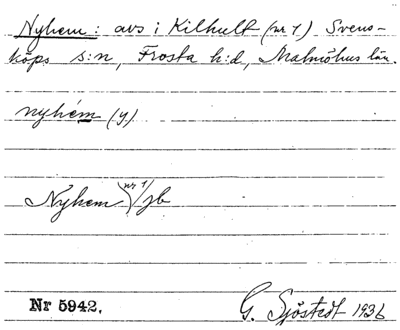 Nyhem: avs i Kilhult (nr 1) Svens-
köps s:n, Frosta h:d, Malmöhus län.
nyhém (y)
Nyhem nr 1/jb
Nr 5942. G. Sjöstedt 1936